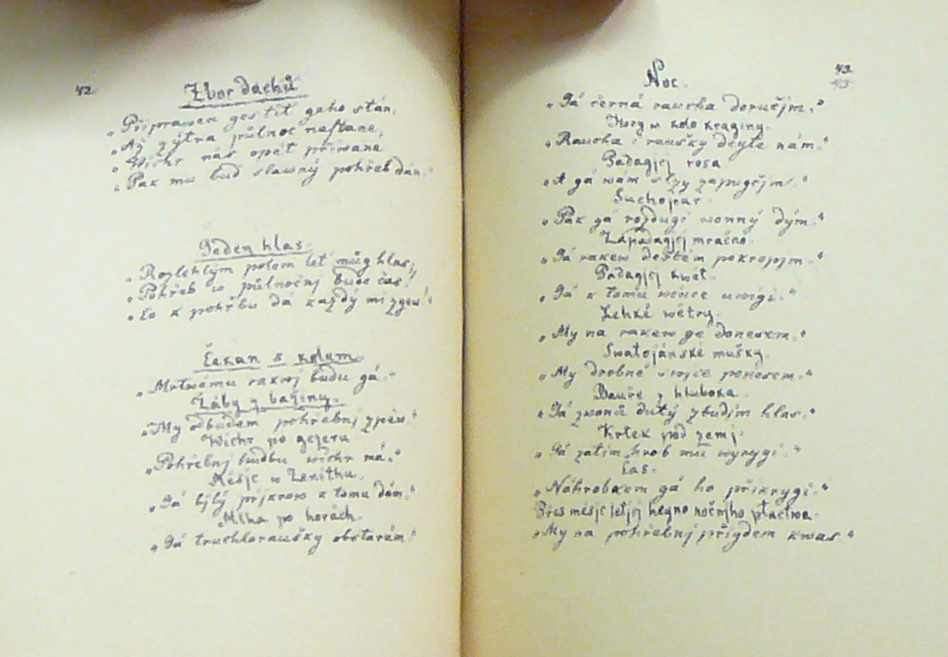 42.
Zbor duchů
„Připrawen gest teď geho stán,
„Až zýtra půlnoc nastane,
„Wichr nás opět přiwane
„Pak mu buď slawný pohřeb dán.“
Geden hlas.
„Rozlehlým polem leť můg hlas,
„Pohřeb w půlnočnj bude čas;
„Co k pohřbu dá každý mi zgew!“
Čekan s kolem.
„Mrtwému rakwj budu gá.“
Žáby z bažiny.
„My odbudem pohřebnj zpěw.“
Wichr po gezeru
„Pohřebnj hudbu wichr má.“
Měsjc w Zenithu.
„Gá bjlý přjkrow k tomu dám.“
Mlha po horách.
„Gá truchloraušky obstarám.“
43.
Noc.
„Gá černá raucha doručjm.“
Hory w kolo kraginy.
„Raucha i raušky deyte nám.“
Padagjcj rosa
„A gá wám slzy zapůgčjm.“
Suchopar.
„Pak gá rozdugi wonný dým.“
Zapadagjcj mračno.
„Gá rakew deštěm pokropjm.“
Padagjcj kwět.
„Gá k tomu wěnce uwigi.“
Lehké wětry.
„My na rakew ge donesem.“
Swatojánské mušky.
„My drobné swjce ponesem.“
Bauře z hluboka.
„Gá zwonů dutý zbudjm hlas.“
Krtek pod zemj.
„Gá zatjm hrob mu wyrygi.“
Čas.
„Náhrobkem gá ho přikrygi.“
Přes měsjc letjcj hegno nočnjho ptactwa.
„My na pohřebnj přigdem kwas.“